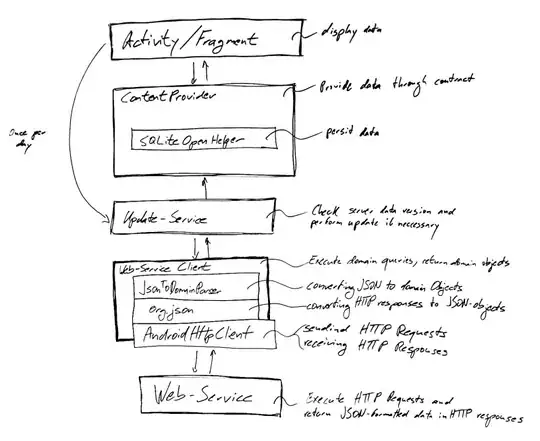 Activity/Fragment
display data
ContentProvider
Provide data through contract
SQLiteOpenHelper
persit data
Once per
day
Update-Service
Check server data version and
perform update if necessary
Web-Service Client
Execute domain queries, return domain objects
JsonToDomainParser
converting JSON to domain Objects
org.json
converting HTTP responses to JSON-objects
AndroidHttpClient
sendind HTTP Requests
receiving HTTP Responses
Web-Service
Execute HTTP Requests and
return JSON-formatted data in HTTP responses